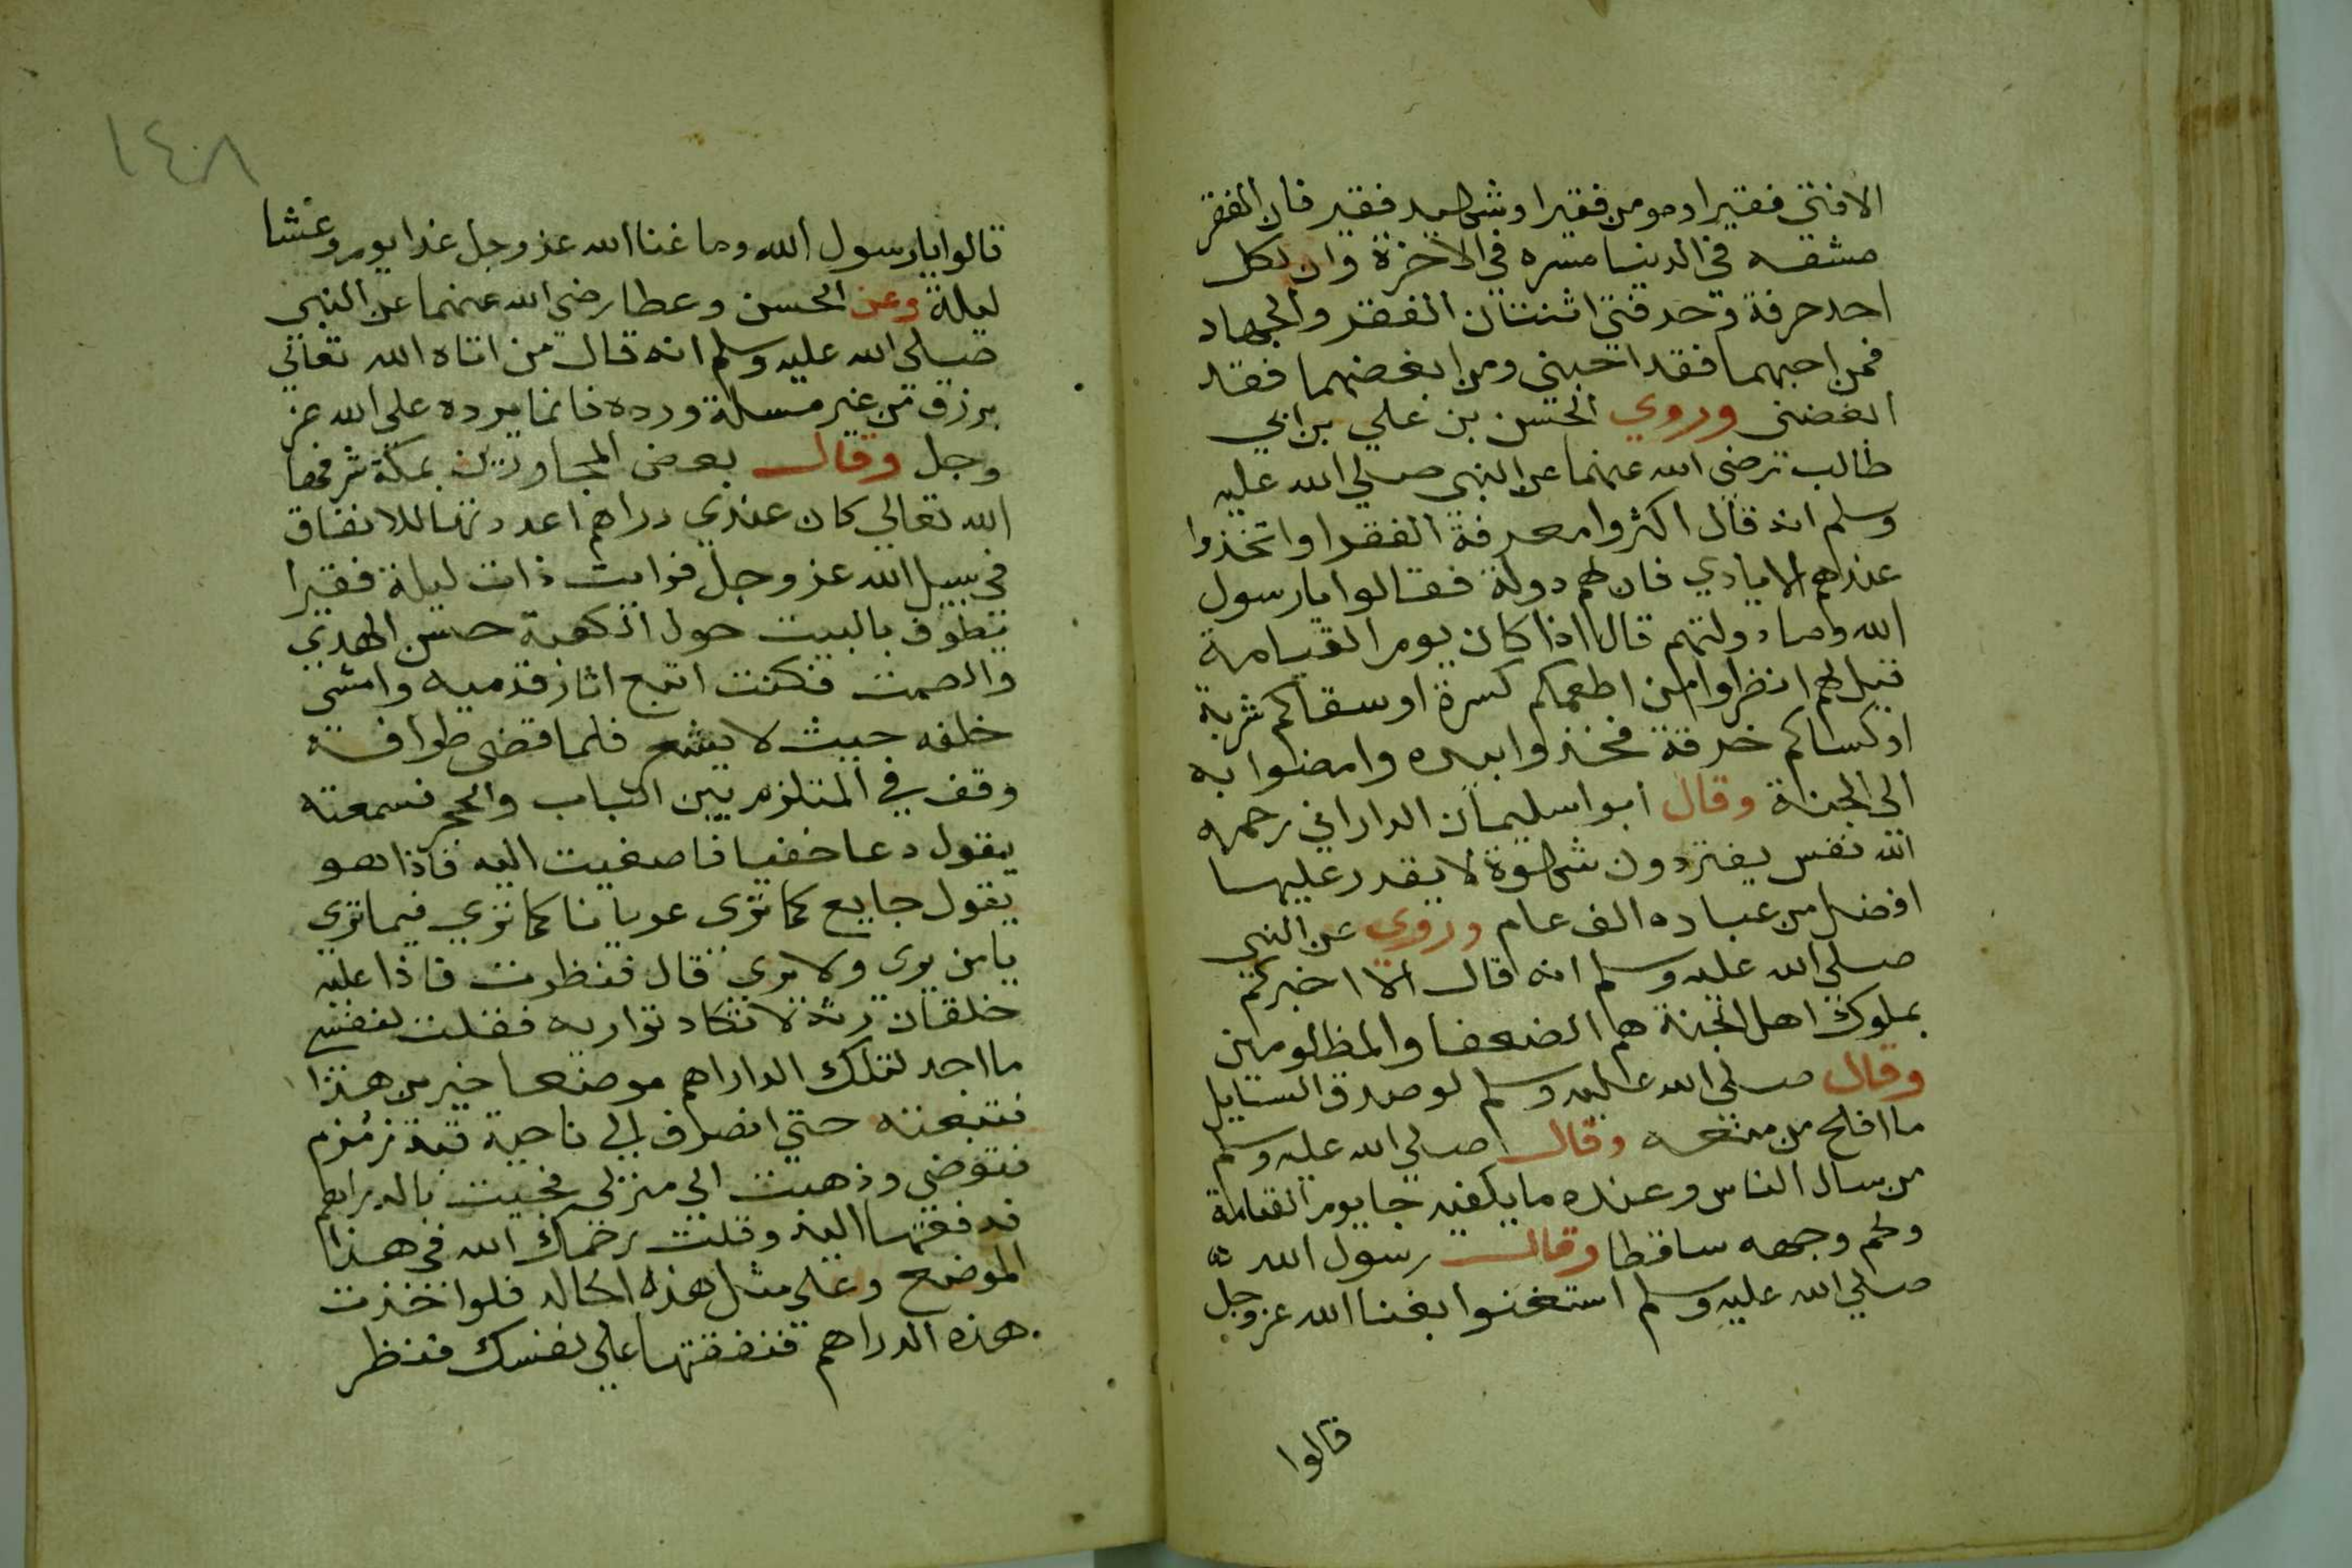 الا فتى فقيرا ومومن فقيرا وشهيد فقير فان الفقر
مشقه في الدنيا مسره في الاخرة وان لكل
احد حرفة وحرفتي اثنتان الفقر والجهاد
فمن احبهما فقد احبني ومن ابغضهما فقد
ابغضني وروي الحسن بن علي بن ابي
طالب رضي الله عنهما عن النبي صلي الله عليه
وسلم انه قال اكثروا معرفة الفقرا واتخذوا
عندهم الايادي فان لهم دولة فقالوا يارسول
الله وما دولتهم قال اذا كان يوم القيامة
قيل لهم انظروا من اطعمكم كسرة او سقاكم شربة
او كساكم خرقة فخذوا بيده وامضوا به
الي الجنة وقال ابوا سليمان الداراني رحمه
الله نفس يفتر دون شهوة لا يقدر عليها
افضل من عباده الف عام وروي عن النبي
صلي الله عليه وسلم انه قال الا اخبركم
بملوك اهل الجنة هم الضعفا والمظلومين
وقال صلي الله عليه وسلم لو صدق السايل
ما افلح من منعه وقال صلي الله عليه وسلم
من سال الناس وعنده ما يكفيه جا يوم القيامة
ولحم وجهه ساقطا وقال رسول الله
صلي الله عليه وسلم استغنوا بغنا الله عز وجل
قالوا
١٤٨
قالوا يارسول الله وما غنا الله عز وجل غدا يوم وعشا
ليلة وعن الحسن وعطا رضي الله عنهما عن النبي
صلي الله عليه وسلم انه قال من اتاه الله تعالي
برزق من غير مسلة ورده فانما يرده علي الله عز
وجل وقال بعض المجاورين بمكة شرفها
الله تعالي كان عندي دراهم اعددتها للانفاق
في سبيل الله عز وجل فرايت ذات ليلة فقيرا
يطوف بالبيت حول الكعبة حسن الهدي
والصمت فكنت اتبع اثار قدميه وامشي
خلفه حيث لا يشعر فلما قضى طوافه
وقف في الملتزم بين الباب والحجر فسمعته
يقول دعا خفيا فاصغيت اليه فاذا هو
يقول جايع كما ترى عريانا كما تري فيما تري
يا من يرى ولا يري قال فنظرت فاذا عليه
خلقان رثة لا تكاد تواريه فقلت لنفسي
ما اجد لتلك الداراهم موضعا خير من هذا
فتبعته حتي انصرف الي ناحية قبة زمزم
فتوضي وذهبت الي منزلي فجيت بالدراهم
فدفعتها اليه وقلت رحمك الله في هذا
الموضع وعلي مثل هذه الحاله فلوا اخذت
هذه الدراهم فنفقتها علي نفسك فنظر